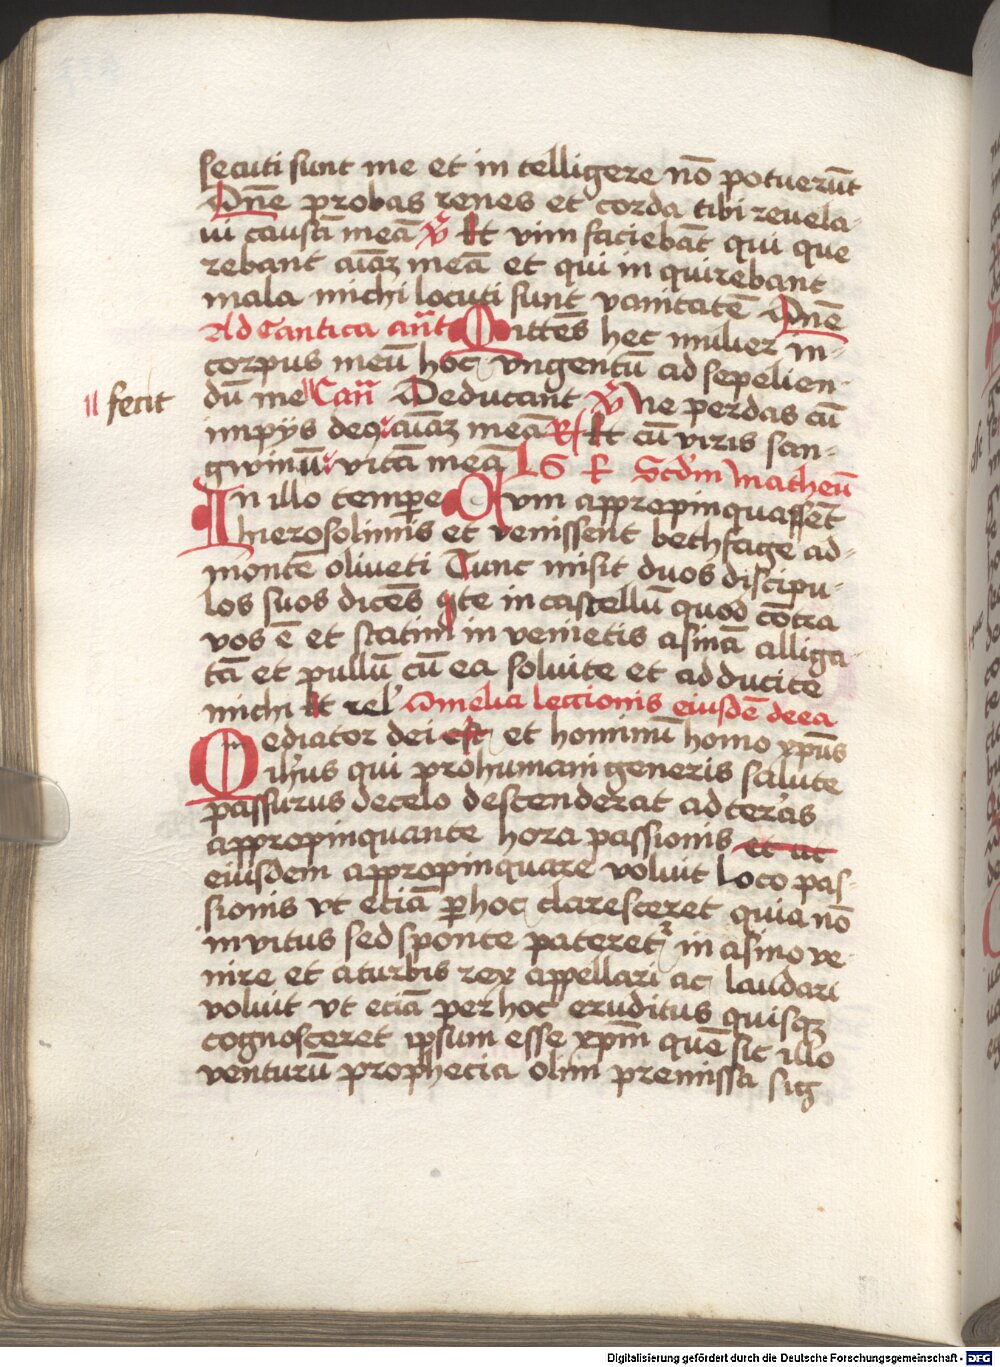 secuti sunt me et in telligere nō potuerūt
Dn̄e probas renes et corda tibi reuela-
ui causā meā ℣ Et vim faciebāt qui que
rebant aīaʒ meā et qui in quirebant
mala michi locuti sunt vanitatē Dn̄e
Ad Cantica an̄t Mittēs hec mulier in-
corpus meū hoc vngentū ad sepelien-
dū me Can̄ Deducant ℣ Ne perdas cū
‖ fecit
impijs deꝯ aīaʒ meā ℟ Et cū viris san-
gwinū vitā meā LS R Scd'm matheū
In illo tempore Cvm appropinquassēt
hierosolimis et venissent bethfage ad-
montē oliueti Tunc misit duos discipu-
los suos dicēs Ite in castellū quod cōtra
vos ē et statim in venietis asinā alliga
tā et pullū cū ea soluite et ad ducite
michi Et rel' Omelia lectionis eiusdē de ea
Mediator dei est et hominū homo xp̄us
ih'us qui pro humani generis salute
passurus de celo descenderat ad ter'as
appropinquante hora passionis et ut
eiusdem appropinquare voluit loco pas-
sionis vt eciā ꝑ hoc claresceret quia nō
invitus sed sponte pateret᷑ in asino ve-
nire et a turbis rex appellari ac laudari
voluit vt eciā per hoc eruditus quisqʒ
cognosceret ipsum esse xp̄m quē sic illo
venturū prophecia olim premissa sig
Digitalisierung gefördert durch die Deutsche Forschungsgemeinschaft - DFG